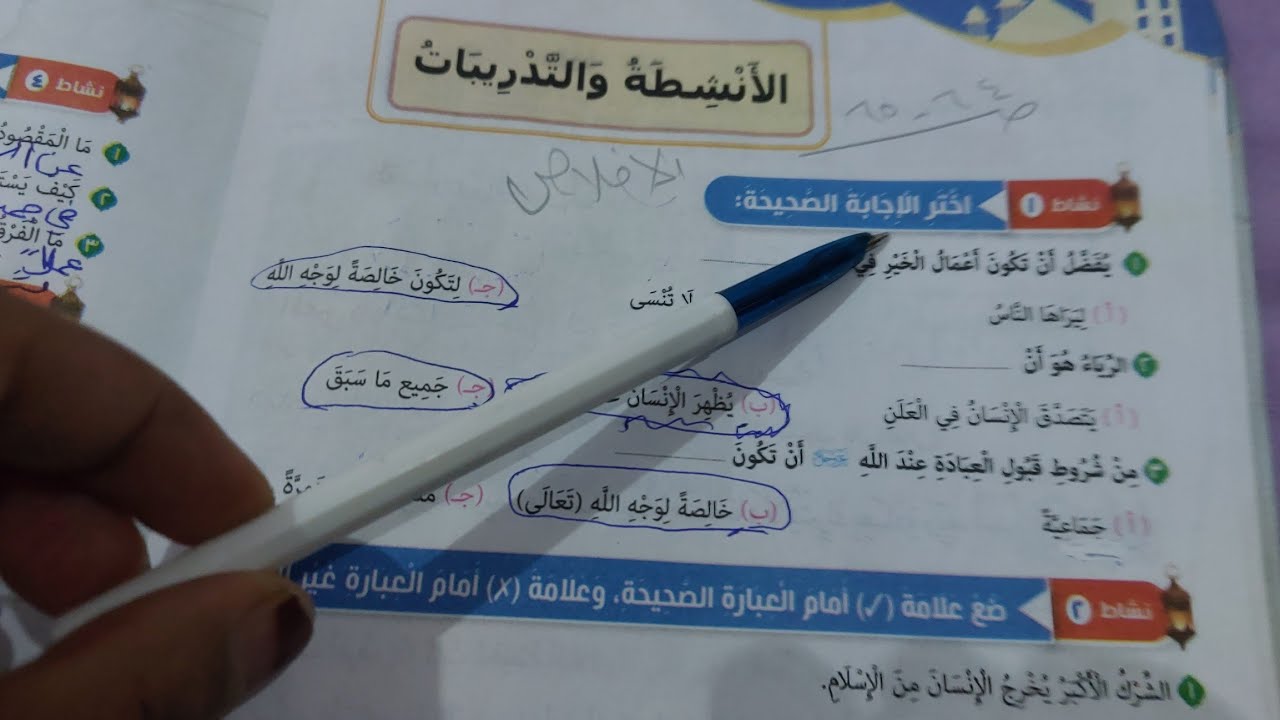 الأَنْشِطَةُ وَالتَّدْرِيبَاتُ
ص ٦٤ - ٦٥
الاخلاص
نشاط ١ اخْتَرِ الْإِجَابَةَ الصَّحِيحَةَ:
١ يُفَضَّلُ أَنْ تَكُونَ أَعْمَالُ الْخَيْرِ فِي
(أ) لِيَرَاهَا النَّاسُ لَا تُنْسَى (جـ) لِتَكُونَ خَالِصَةً لِوَجْهِ اللَّهِ
٢ الرِّيَاءُ هُوَ أَنْ
(أ) يَتَصَدَّقَ الْإِنْسَانُ فِي الْعَلَنِ (ب) يُظْهِرَ الْإِنْسَان (جـ) جَمِيع مَا سَبَقَ
٣ مِنْ شُرُوطِ قَبُولِ الْعِبَادَةِ عِنْدَ اللَّهِ أَنْ تَكُونَ
(أ) جَمَاعِيَّةً (ب) خَالِصَةً لِوَجْهِ اللَّهِ (تَعَالَى) (جـ)
نشاط ٢ ضَعْ علامة (✓) أمامَ الْعبارة الصَّحيحَة، وَعلامَة (✗) أمامَ الْعبارة غَيْر
١ الشِّرْكُ الْأَكْبَرُ يُخْرِجُ الْإِنْسَانَ مِنَ الْإِسْلَامِ.
نشاط ٤
١ مَا الْمَقْصُودُ
٢ كَيْفَ
٣ مَا الْفَرْقُ